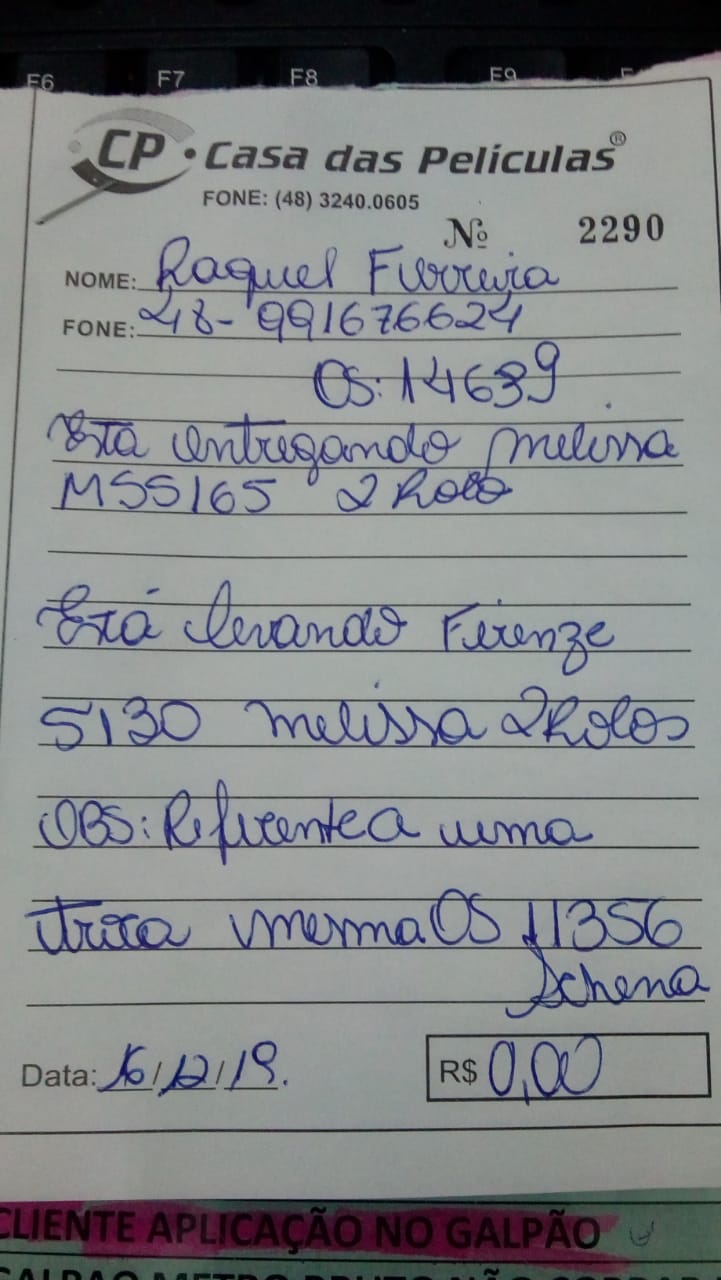 F6 F7 F8 F9
CP • Casa das Películas®
FONE: (48) 3240.0605
Nº 2290
NOME: Raquel Ferreira
FONE: 48-991676624
OS: 14639
Está entregando melissa
MSS165 2 Rolo
Está levando Firenze
5130 melissa 2 Rolos
OBS: Referente a uma
troca mesma OS 11356
Schena
Data: 16/12/19.
R$ 0,00
CLIENTE APLICAÇÃO NO GALPÃO